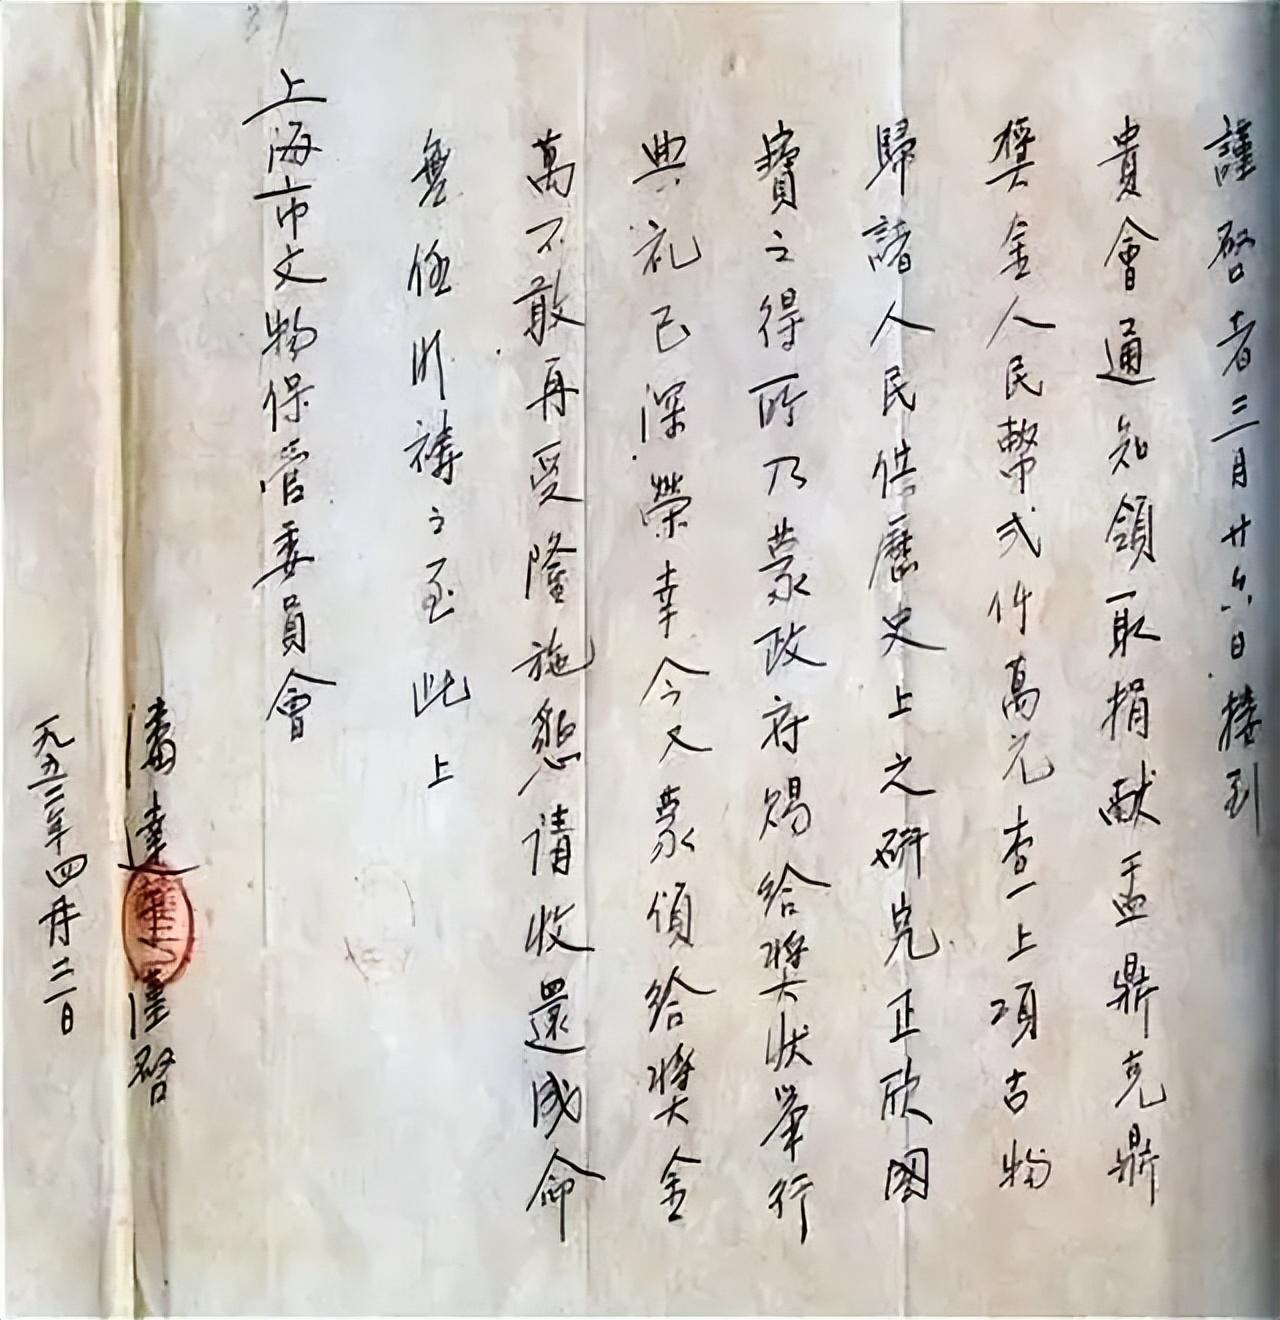 謹啓者三月廿六日接到
貴會通知領取捐献盂鼎克鼎
獎金人民幣弍仟萬元查上項古物
歸諸人民供歷史上之研究正欣國
寶之得所乃蒙政府賜給獎狀舉行
典礼已深榮幸今又蒙頒給獎金
萬不敢再受隆施懇請收還成命
無任盻禱之至此上
上海市文物保管委員會
潘達謹啓
一九五二年四月二日